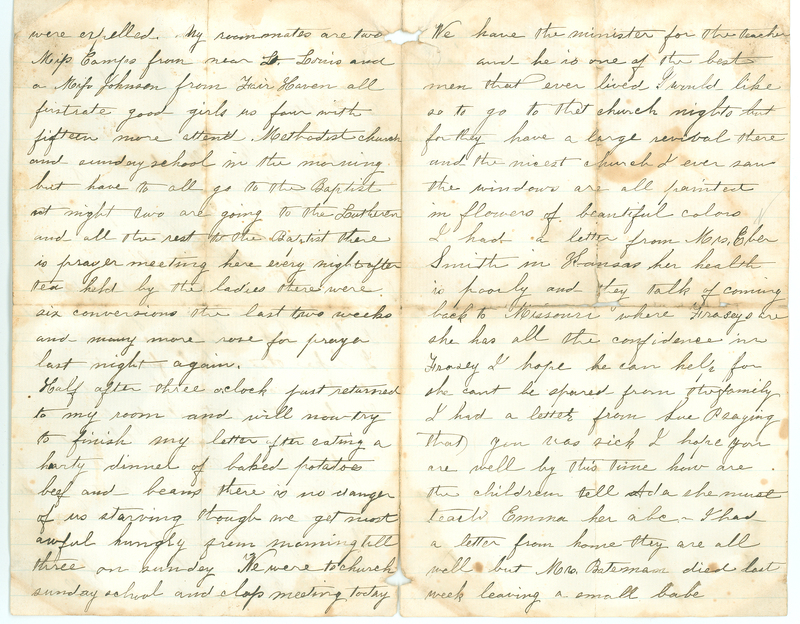 were expelled. My roommates are two
Miss Camps from near St. Louis and
a Miss Johnson from Fair Haven all
firstrate good girls us four with
fifteen more attend Methodist church
and sunday school in the morning
but have to all go to the Baptist
at night two are going to the Lutheren
and all the rest to the Baptist there
is prayer meeting here every night after
tea held by the ladies there were
six conversions the last two weeks
and many more rose for prayer
last night again.
Half after three oclock just returned
to my room and will now try
to finish my letter after eating a
harty dinner of baked potatoe
beef and beans there is no danger
of us starving though we get most
awful hungry from morning till
three on sunday We were to church
sunday school and class meeting today
We have the minister for the teacher
and he is one of the best
men that ever lived I would like
so to go to that church nights but
for they have a large revival there
and the nicest church I ever saw
the windows are all painted
in flowers of beautiful colors
I had a letter from Mrs. Eber
Smith in Kansas her health
is poorly and they talk of coming
back to Missouri where Fraseys are
she has all the confidence in
Frasey I hope he can help for
she cant be spared from the family
I had a letter from Sue saying
that you was sick I hope you
are well by this time how are
the children tell Ada she must
teach Emma her abc - I had
a letter from home they are all
well but Mrs. Bateman died last
week leaving a small babe